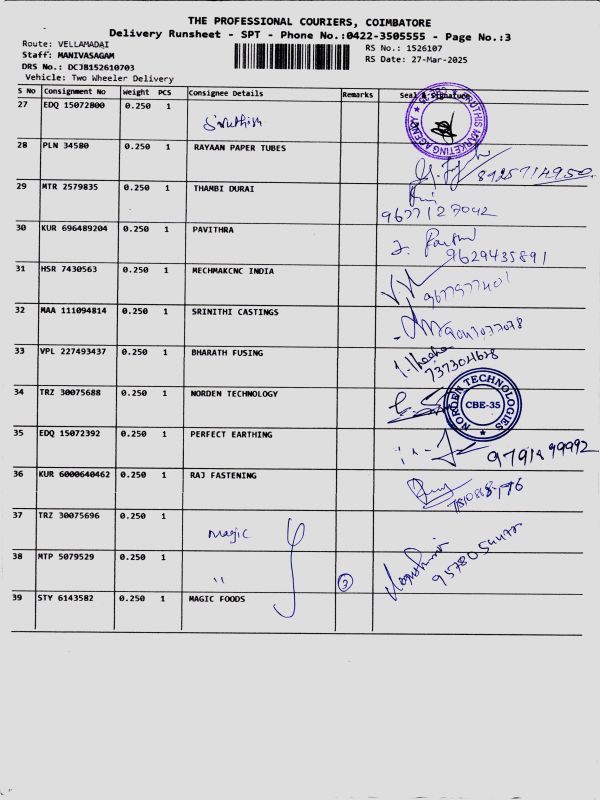 THE PROFESSIONAL COURIERS, COIMBATORE
Delivery Runsheet - SPT - Phone No.:0422-3505555 - Page No.:3
Route: VELLAMADAI
RS No.: 1526107
Staff: MANIVASAGAM
RS Date: 27-Mar-2025
DRS No.: DCJB152610703
Vehicle: Two Wheeler Delivery
S No Consignment No Weight PCS Consignee Details Remarks Seal & Signature
27 EDQ 15072800 0.250 1
Sruthis
28 PLN 34580 0.250 1 RAYAAN PAPER TUBES
8925714950
29 MTR 2579835 0.250 1 THAMBI DURAI
9677127042
30 KUR 696489204 0.250 1 PAVITHRA
9629435891
31 HSR 7430563 0.250 1 MECHMAKCNC INDIA
9677977401
32 MAA 111094814 0.250 1 SRINITHI CASTINGS
33 VPL 227493437 0.250 1 BHARATH FUSING
7373041628
34 TRZ 30075688 0.250 1 NORDEN TECHNOLOGY
NORDEN TECHNOLOGIES
CBE-35
35 EDQ 15072392 0.250 1 PERFECT EARTHING
36 KUR 6000640462 0.250 1 RAJ FASTENING
37 TRZ 30075696 0.250 1
Magic
38 MTP 5079529 0.250 1
" 3
39 STY 6143582 0.250 1 MAGIC FOODS